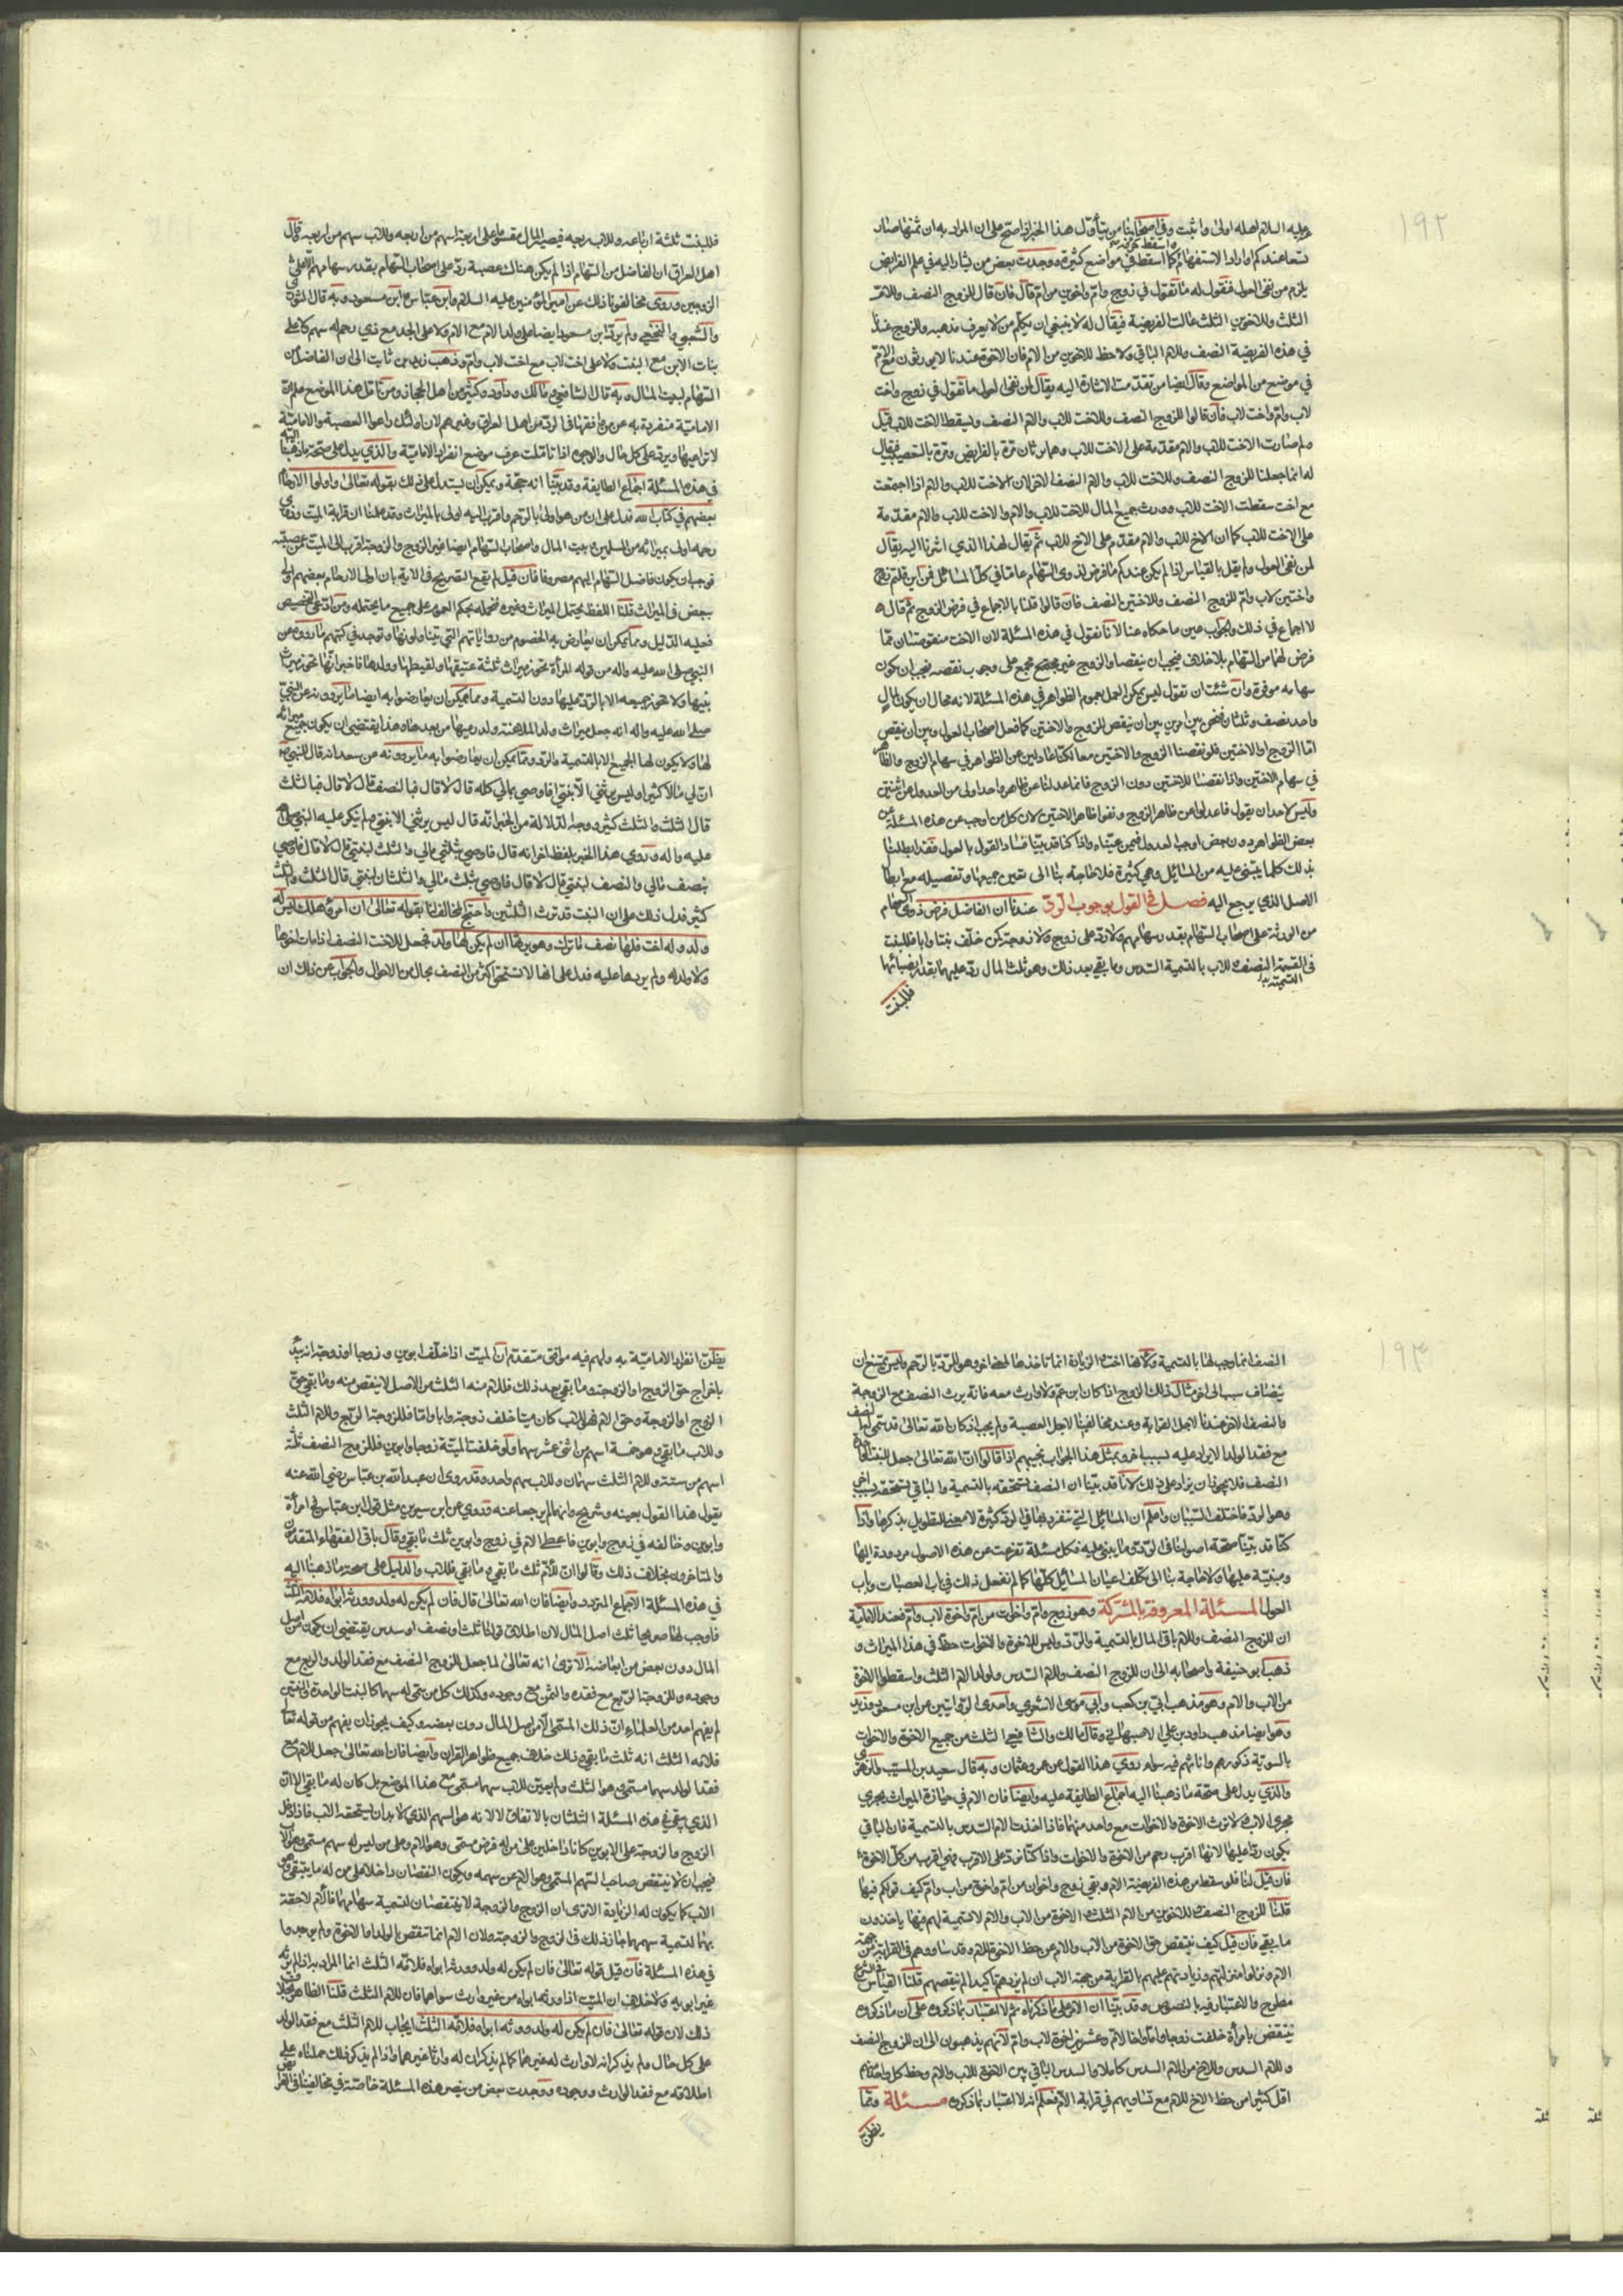 ١٩٢
عليه السلام اهله اولى واثبت وفي اصحابنا من يتأول هذا الخبر اذا صح على ان المراد به ان ثمنها صار
تسعا عندكم واراد الاستفهام كما اسقط في مواضع كثيرة ووجدت بعض من يشار اليه في علم الفرايض
يلزم من نفى العول فيقول له ما تقول في زوج وام واخوين من ام قال فان قال للزوج النصف وللام
الثلث وللاخوين الثلث عالت الفريضة فيقال له لا ينبغي ان يكلم من لا يعرف مذهبه والزوج عندنا
في هذه الفريضة النصف وللام الباقي ولا حظ للاخوين من الام فان الاخوة عندنا لا يورثون مع الام
في موضع من المواضع وقال ايضا من تقدمت الاشارة اليه يقال لمن نفى العول ما تقول في زوج واخت
لاب وام واخت لاب فان قالوا للزوج النصف وللاخت للاب والام النصف وليسقط الاخت للاب قيل
ولم صارت الاخت للاب والام مقدمة على الاخت للاب وهما يرثان مرة بالفرايض ومرة بالتعصيب فيقال
له انما جعلنا للزوج النصف وللاخت للاب والام النصف الاخر لان الاخت للاب والام اذا اجتمعت
مع اخت سقطت الاخت للاب وورث جميع المال للاخت للاب والام والاخت للاب والام مقدمة
على الاخت للاب كما ان الاخ للاب والام مقدم على الاخ للاب ثم يقال لهذا الذي اشرنا اليه يقال
لمن نفى العول ولم يقل بالقياس اذا لم يكن عندكم ما فرض لذوى السهام عاما في كل المسائل فمن اين قلتم زوج
واختين لاب وام للزوج النصف وللاختين النصف فان قالوا قلنا بالاجماع في فرض الزوج ثم قال و
لا اجماع في ذلك والجواب عن ما حكاه عنا لانا نقول في هذه المسئلة لان الاخت منقوصتان مما
فرض لهما من السهام بلا خلاف فيجب ان ينقصا والزوج غير مجمع على وجوب نقصه فيجب ان يكون
سهامه موفرة وان شئت ان تقول ليس يمكن العمل بعموم الظواهر في هذه المسئلة لانه محال ان يكون لمال
واحد نصف وثلثان فنحن بين امرين بين ان ينقص الزوج والاختين كما فعل اصحاب العول وبين ان ننقص
اما الزوج او الاختين فلو نقصنا الزوج والاختين معا لكنا عادلين عن الظواهر في سهام الزوج والظاهر
في سهام الاختين واذا نقصنا للاختين دون الزوج فانما عدلنا عن ظاهر واحد اولى من العدول عن اثنين
وليس لاحد ان يقول فاعدلوا عن ظاهر الزوج ونفوا ظاهر الاختين لان كل من اوجب عن هذه المسئلة عن
بعض الظواهر دون بعض اوجب العدول فيمن عيناه واذا كنا قد بينا فساد القول بالعول فقد ابطلنا
بذلك كلما يبتنى عليه من المسائل وهي كثيرة فلا حاجة بنا الى تعين جميعها وتفصيله مع ابطال
الاصل الذي يرجع اليه فصل في القول بوجوب الرد عندنا ان الفاضل فرض ذوى السهام
من الورثة على اصحاب السهام بقدر سهامهم ولا ترد على زوج ولا زوجة كمن خلف بنتا وابا فللبنت
في القسمة النصف وللاب بالتسمية السدس وما بقي بعد ذلك وهو ثلث المال رد عليهما بقدر انصبائهما
فللبنت
فللبنت ثلثة ارباعه وللاب ربعه فيصير المال مقسوما على اربعة اسهم من اربعة وللاب سهم من اربعة قال
اهل العراق ان الفاضل من السهام اذا لم يكن هناك عصبة رد على اصحاب السهام بقدر سهامهم الا على
الزوجين وروى مخالفونا ذلك عن امير المؤمنين عليه السلام وابن عباس وابن مسعود وبه قال الثوري
والشعبي والنخعي ولم يرد ابن مسعود ايضا على ولد الام مع الام ولا على الجد مع ذي رحم له سهم ولا على
بنات الابن مع البنت ولا على اخت لاب مع اخت لاب وام وذهب زيد بن ثابت الى ان الفاضل من
السهام لبيت المال وبه قال الشافعي ومالك وداود وكثير من اهل الحجاز ومن تأمل هذا الموضع علم ان
الامامية منفردة به عن من وافقها في الرد من اهل العراق وغيرهم لان اولئك راعوا العصبة والامامية
لا تراعيها وترد على كل حال والوجوه اذا تأملت عرف موضع انفراد الامامية والذي يدل على صحة ما ذهبنا
في هذه المسئلة اجماع الطايفة وقد بينا انه حجة ويمكن ان يستدل على ذلك بقوله تعالى واولوا الارحام
بعضهم في كتاب الله فدل على ان من هو اولى بالرحم واقرب اليه اولى بالميراث وقد علمنا ان قرابة الميت وذوى
رحمه اولى بميراثه من المسلمين وبيت المال واصحاب السهام ايضا غير الزوج والزوجة اقرب الى الميت من عصبته
فوجب ان يكون فاضل السهام اليهم مصروفا فان قيل لم يقع التصريح في الاية بان اولوا الارحام بعضهم اولى
ببعض في الميراث قلنا اللفظ يحتمل الميراث وغيره فنحمله بحكم العموم على جميع ما يحتمله ومن ادعى التخصيص
فعليه الدليل ومما يمكن ان يعارض به الخصوم من رواياتهم التي يتناولونها وتوجد في كتبهم ما رووه عن
النبي صلى الله عليه واله من قوله المرأة تحوز ميراث ثلثة عتيقها ولقيطها وولدها فاخبر انها تحوز ميراث
بنيها ولا تحوز جميعه الا بالرد عليها دون التسمية ومما يمكن ان يعارضوا به ايضا ما يروونه عن النبي
صلى الله عليه واله انه جعل ميراث ولد الملاعنة ولد ديها من بعدها وهذا يقتضي ان يكون جميع ميراثه
لها ولا يكون لها الجميع الا بالتسمية والرد ومما يمكن ان يعارضوا به ما يروونه عن سعد انه قال للنبي ص
ان لي مالا كثيرا وليس يرثني الا بنتي افاوصي بمالي كله قال لا قال فبالنصف قال لا قال فبالثلث
قال الثلث والثلث كثير ووجه الدلالة من الخبر انه قال ليس يرثني الا بنتي ولم ينكر عليه النبي صلى الله
عليه واله وروي هذا الخبر بلفظ اخر انه قال فاوصي بثلثي مالي والثلث لبنتي قال لا قال فاوصي
بنصف مالي والنصف لبنتي قال لا قال فاوصي بثلث مالي والثلثان لبنتي قال الثلث والثلث
كثير فدل ذلك على ان البنت قد ترث الثلثين واحتج المخالف لنا بقوله تعالى ان امرؤ هلك ليس له
ولد وله اخت فلها نصف ما ترك وهو يرثها ان لم يكن لها ولد فجعل للاخت النصف اذا مات اخوها
ولا ولد له ولم يردها عليه فدل على انها لا تستحق اكثر من النصف بحال من الاحوال والجواب عن ذلك ان
١٩٣
النصف انما وجب لها بالتسمية ولانها اخت والزيادة انما تاخذها لمعنى اخر وهو للرد بالرحم وليس يمتنع ان
ينضاف سبب الى اخر مثال ذلك الزوج اذا كان ابن عم ولا وارث معه فانه يرث النصف مع الزوجية
والنصف الاخر عندنا لاجل القرابة وعند مخالفينا لاجل العصبة ولم يجب اذ كان الله تعالى قد سمى لها النصف
مع فقد الولد الا يزاد عليه لسبب اخر وبمثل هذا الجواب نجيبهم اذا قالوا ان الله تعالى جعل للبنت الواحدة
النصف فلا يجوز ان يزاد على ذلك لانا قد بينا ان النصف تستحقه بالتسمية والباقي تستحقه بسبب اخر
وهو الرد فاختلف السببان واعلم ان المسائل التي تنفرد بها في الرد كثيرة لا معنى للتطويل بذكرها واذا
كنا قد بينا صحة اصولنا في الرد وما يبتنى عليه فكل مسئلة تفرعت عن هذه الاصول مردودة اليها
ومبنية عليها ولا حاجة بنا الى تكلف اعيان المسائل كلها كما لم نفعل ذلك في باب العصبات وباب
العول المسئلة المعروفة بالمشركة وهو زوج وام واخوات من ام واخوة لاب وام فعند الامامية
ان للزوج النصف وللام باقي المال بالتسمية والرد وليس للاخوة والاخوات حظ في هذا الميراث و
ذهب ابو حنيفة واصحابه الى ان للزوج النصف وللام السدس ولولد الام الثلث واسقطوا الاخوة
من الاب والام وهو مذهب ابي بن كعب وابي موسى الاشعري واحدى الروايتين عن ابن مسعود وزيد
وهو ايضا مذهب داود بن علي الاصبهاني وقال مالك والشافعي الثلث من جميع الاخوة والاخوات
بالسوية ذكورهم واناثهم فيه سواء وروي هذا القول عن عمر وعثمان وبه قال سعيد بن المسيب والزهري
والذي يدل على صحة ما ذهبنا اليه اجماع الطايفة عليه وايضا فان الام في حيازة الميراث يجري
مجرى الاب لا ترث الاخوة والاخوات مع واحد منهما فاذا اخذت الام السدس بالتسمية فان الباقي
يكون ردا عليها لانها اقرب رحم من الاخوة والاخوات واذا كنا نرد على الاقرب فهي اقرب من كل الاخوة
فان قيل لنا فلو سقط من هذه الفريضة الام وبقي زوج واخوان من ام واخوة من اب وام كيف قولكم فيها
قلنا للزوج النصف وللاخوين من الام الثلث والاخوة من الاب والام لا تسمية لهم فيها ياخذون
ما بقي فان قيل كيف ينقص حق الاخوة من الاب والام من حظ الاخوة للام وقد ساووهم في القرابة من جهة
الام ونزلوا منزلتهم وزيادتهم عليهم بالقرابة من جهة الاب ان لم يزدهم تأكيدا لم ينقصهم قلنا القياس في الشرع
مطرح والاعتبار فيه بالنصوص وقد بينا ان الامر على ما ذكرناه ثم لا اعتبار بما ذكروه على ان ما ذكروه
ينتقض بامرأة خلفت زوجا واما واخا لام وعشرين اخوة لاب وام لانهم يذهبون الى ان للزوج النصف
وللام السدس وللاخ من الام السدس كاملا والسدس الباقي بين الاخوة للاب والام وحظ كل واحد منهم
اقل كثيرا من حظ الاخ للام مع تساويهم في قرابة الام فعلم انه لا اعتبار بما ذكروه مسئلة ومما
يظن
يظن انفراد الامامية به ولهم فيه موافق متقدم ان الميت اذا خلف ابوين وزوجا او زوجة انه يبدأ
باخراج حق الزوج او الزوجة وما بقي بعد ذلك فللام منه الثلث من الاصل لا ينقص منه وما بقي حق
الزوج او الزوجة وحق الام فهو للاب كان ميتا خلف زوجة وابا واما فللزوجة الربع وللام الثلث
وللاب ما بقي وهو خمسة اسهم من اثنى عشر سهما ولو خلفت الميتة زوجا وابوين فللزوج النصف ثلثة
اسهم من ستة وللام الثلث سهمان وللاب سهم واحد وقد روى ان عبد الله بن عباس رضي الله عنه
يقول هذا القول بعينه وشريح وانهما لم يرجعا عنه وروي عن ابن سيرين مثل قول ابن عباس في امرأة
وابوين وخالفه في زوج وابوين فاعطى الام في زوج وابوين ثلث ما بقي وقال باقي الفقهاء المتقدمين
والمتاخرون بخلاف ذلك وقالوا ان للام ثلث ما بقي وما بقي فللاب والدليل على صحة ما ذهبنا اليه
في هذه المسئلة الاجماع المتردد وايضا فان الله تعالى قال فان لم يكن له ولد وورثه ابواه فلامه الثلث
فاوجب لها صريحا ثلث اصل المال لان اطلاق قولنا ثلث او نصف او سدس يقتضي ان يكون من اصل
المال دون بعض من ابعاضه الا ترى انه تعالى لما جعل للزوج النصف مع فقد الولد والربع مع
وجوده وللزوجة الربع مع فقده والثمن مع وجوده وكذلك كل من سمى له سهما كالبنت الواحدة والبنتين
لم يفهم احد من العلماء ان ذلك المستحق الا من اصل المال دون بعضه وكيف يجوز ان يفهم من قوله تعالى
فلامه الثلث انه ثلث ما بقي وذلك خلاف جميع ظواهر القران وايضا فان الله تعالى جعل للام مع
فقد الولد سهما مسمى وهو الثلث ولم يعين للاب سهما مسمى مع هذا الموضع بل كان له ما بقي الا ان
الذي بقي في هذه المسئلة الثلثان بالاتفاق لا لانه هو السهم الذي لا بد ان يستحقه الاب فاذا دخل
الزوج والزوجة على الابوين كانا داخلين على من له فرض مسمى وهو الام وعلى من ليس له سهم مسمى وهو الاب
فيجب ان لا ينتقص صاحب السهم المسمى وهو الام عن سهمه ويكون النقصان داخلا على من له ما يبقى وهو
الاب كما يكون له الزيادة الا ترى ان الزوج والزوجة لا ينتقصان لتسمية سهامهما فالام لاحقة
بهما لتسمية سهمهما جاز ذلك في الزوج والزوجة ولان الام انما تنقص بالولد او الاخوة ولم يوجدوا
في هذه المسئلة فان قيل قوله تعالى فان لم يكن له ولد وورثه ابواه فلامه الثلث انما المراد به اذا لم يرثه
غير ابويه ولا خلاف ان الميت اذا ورثه ابواه من غير وارث سواهما فان للام الثلث قلنا الظاهر بخلاف
ذلك لان قوله تعالى فان لم يكن له ولد وورثه ابواه فلامه الثلث ايجاب للام الثلث مع فقد الولد
على كل حال ولم يذكر انه لا وارث له غيرهما كما لم يذكر ان له وارثا غيرهما واذا لم يذكر ذلك حملناه على
اطلاقه مع فقد الوارث ووجوده ووجدت بعض من ينصر هذه المسئلة خاصة في مخالفينا في